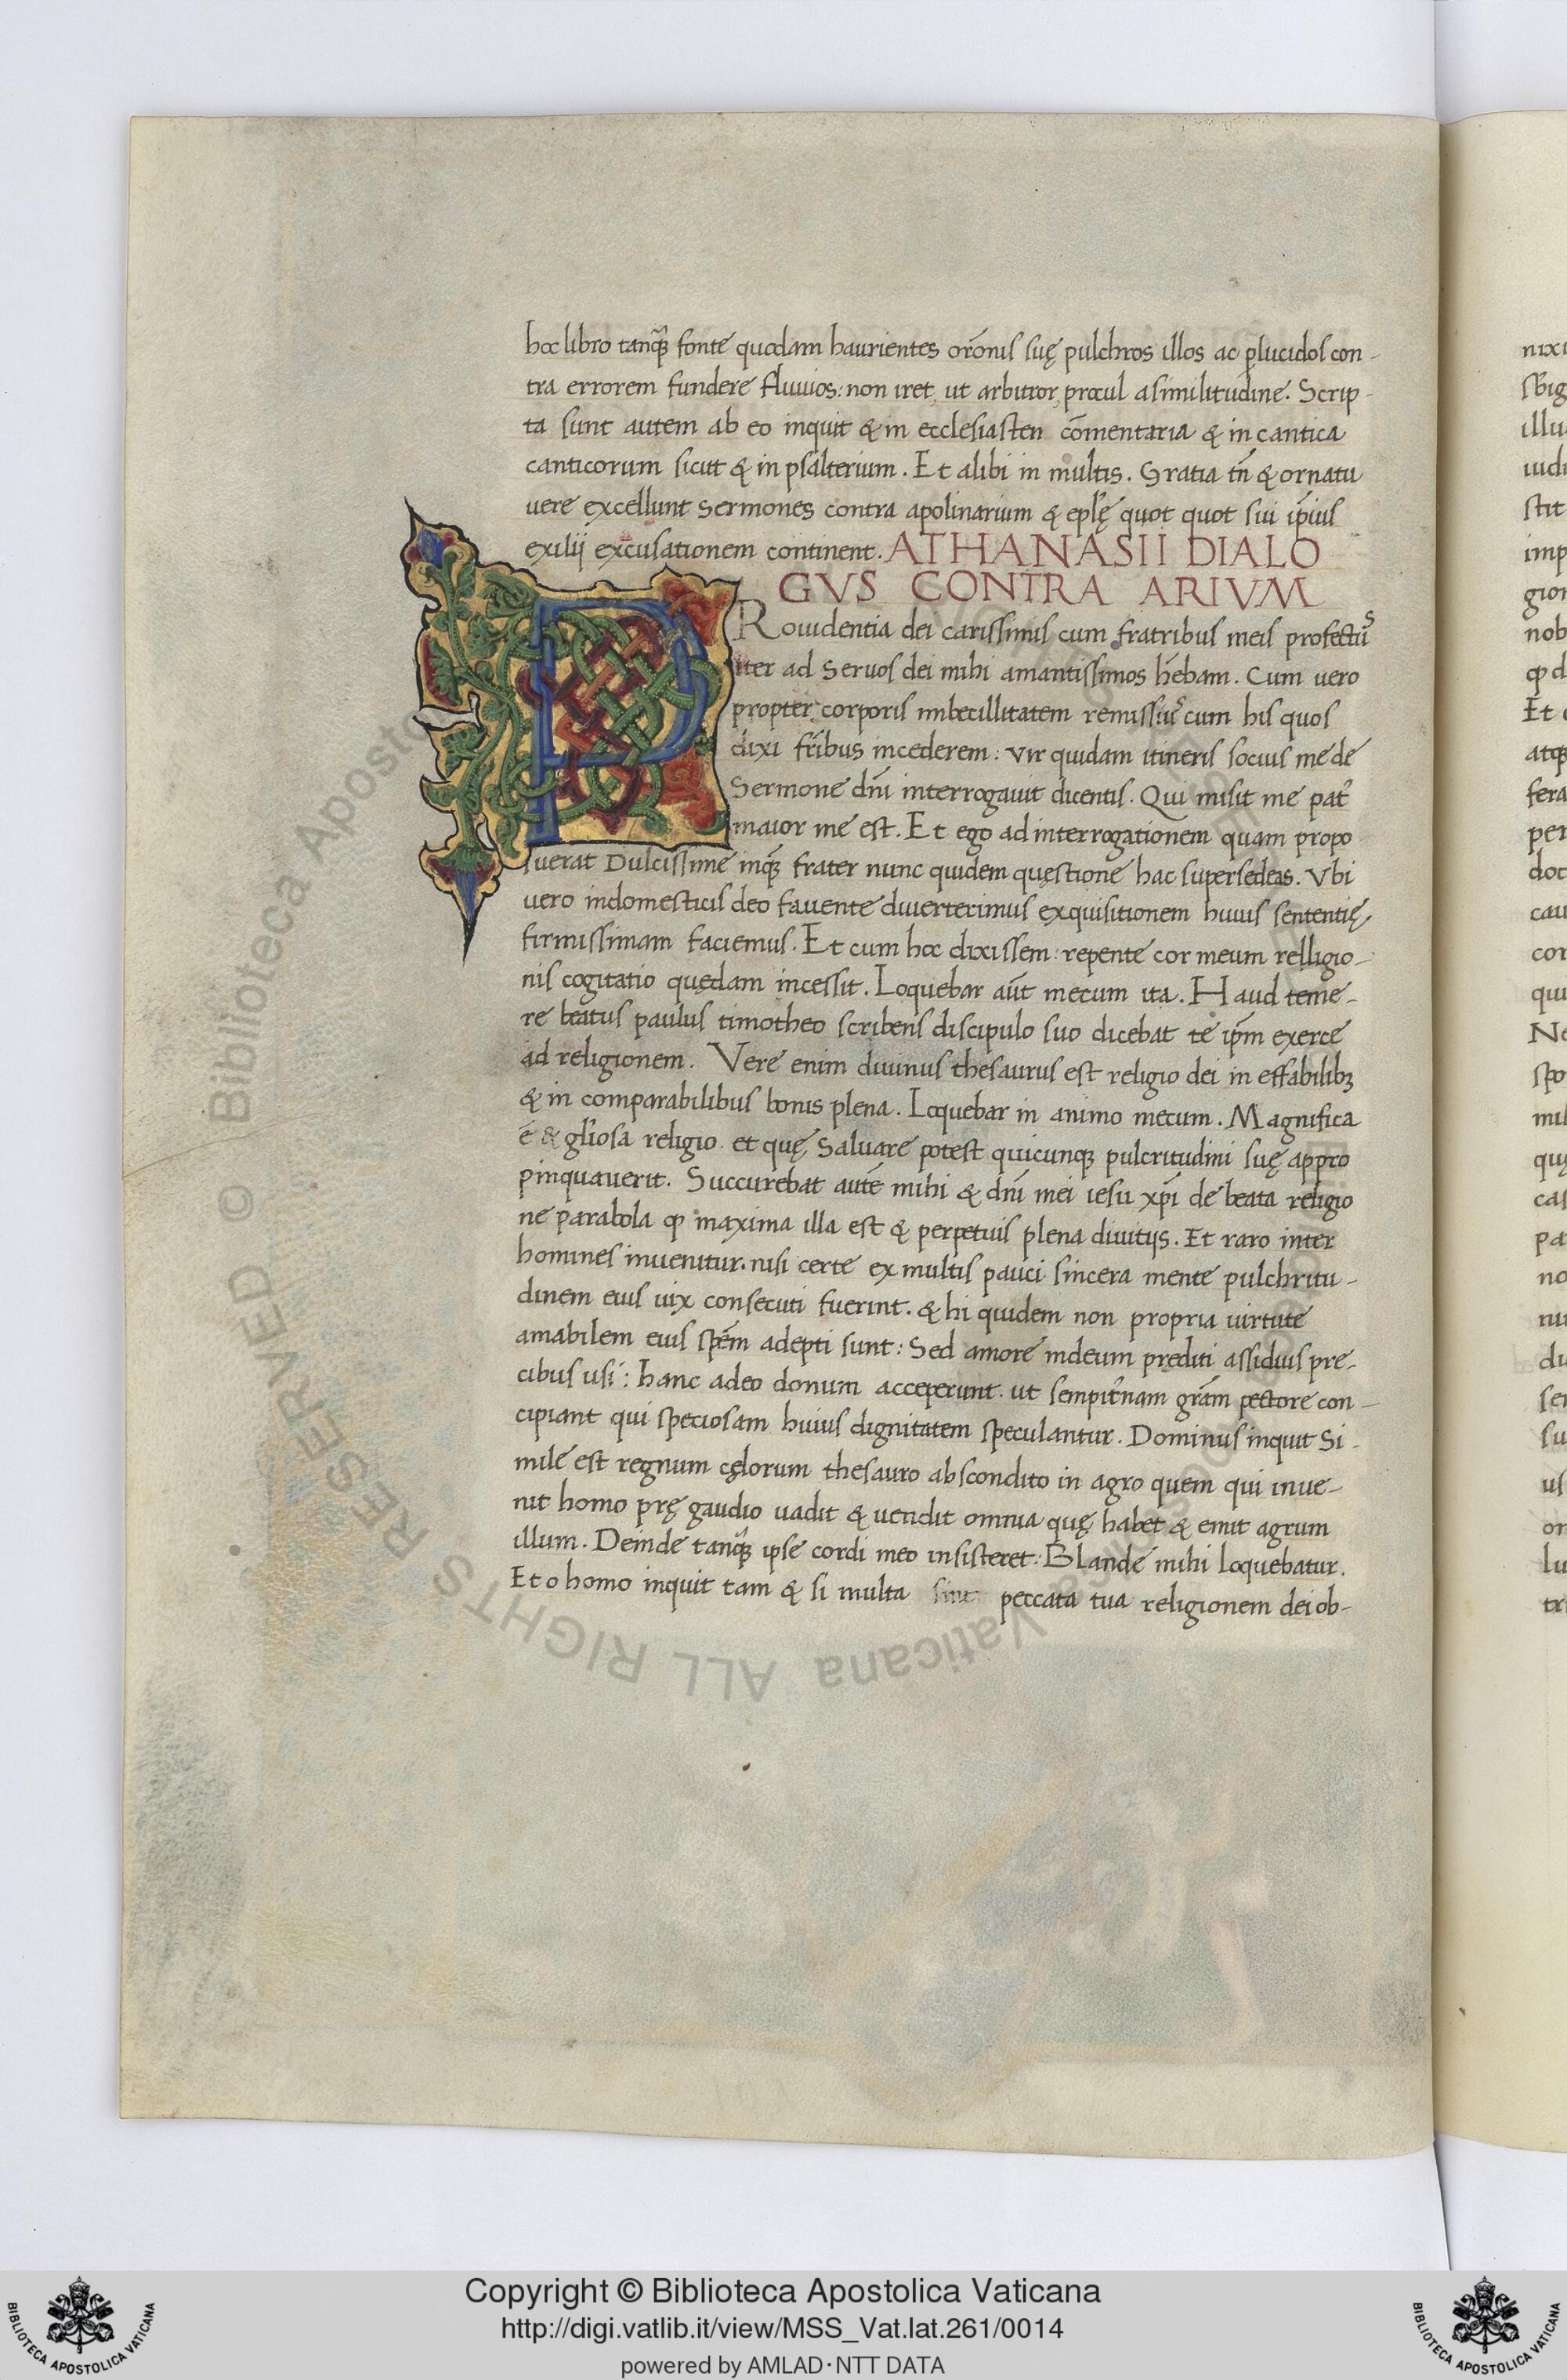 hoc libro tanq̃ꝫ fonte quodam haurientes orõnis suę pulchros illos ac plucidos con-
tra errorem fundere fluuios: non iret, ut arbitror, procul a similitudine. Scrip-
ta sunt autem ab eo inquit & in ecclesiasten cõmentaria & in cantica
canticorum sicut & in psalterium. Et alibi in multis. Gratia tñ & ornatu
uere excellunt sermones contra apolinarium & eplę̃ quot quot sui ip̃ius
exilij excusationem continent. ATHANASII DIALO
GVS CONTRA ARIVM
PRouidentia dei carissimis cum fratribus meis profectu᷒
iter ad seruos dei mihi amantissimos hẽbam. Cum uero
propter corporis imbecillitatem remissiu᷒ cum his quos
dixi fr̃ibus incederem: vir quidam itineris socius me de
sermone dñi interrogauit dicentis. Qui misit me pat̃
maior me est. Et ego ad interrogationem quam propo
suerat Dulcissime inqꝫ frater nunc quidem questione hac supersedeas. Vbi
uero in domesticis deo fauente diuerterimus exquisitionem huius sententię
firmissimam faciemus. Et cum hoc dixissem: repente cor meum relligio-
nis cogitatio quędam incessit. Loquebar aũt mecum ita. Haud teme-
re beatus paulus timotheo scribens discipulo suo dicebat te ip̃m exerce
ad religionem. Vere enim diuinus thesaurus est religio dei in effabilibꝫ
& in comparabilibus bonis plena. Loquebar in animo mecum. Magnifica
ẽ & gl̃iosa religio et quę saluare potest quicunqꝫ pulcritudini suę appro
pinquauerit. Succurebat autẽ mihi & dñi mei iesu xp̃i de beata religio
ne parabola ꝙ maxima illa est & perpetuis plena diuitijs. Et raro inter
homines inuenitur. nisi certe ex multis pauci sincera mente pulchritu-
dinem eius uix consecuti fuerint. & hi quidem non propria uirtute
amabilem eius spẽm adepti sunt: Sed amore in deum prediti assiduis pre-
cibus usi: hanc adeo donum acceperunt. ut sempit̃nam gr̃am pectore con-
cipiant qui speciosam huius dignitatem speculantur. Dominus inquit Si-
mile est regnum cęlorum thesauro abscondito in agro quem qui inue-
nit homo prę gaudio uadit & uendit omnia quę habet & emit agrum
illum. Deinde tanq̃ꝫ ipse cordi meo insisteret: Blande mihi loquebatur.
Et o homo inquit tam & si multa sint peccata tua religionem dei ob-
Copyright © Biblioteca Apostolica Vaticana
http://digi.vatlib.it/view/MSS_Vat.lat.261/0014
powered by AMLAD·NTT DATA